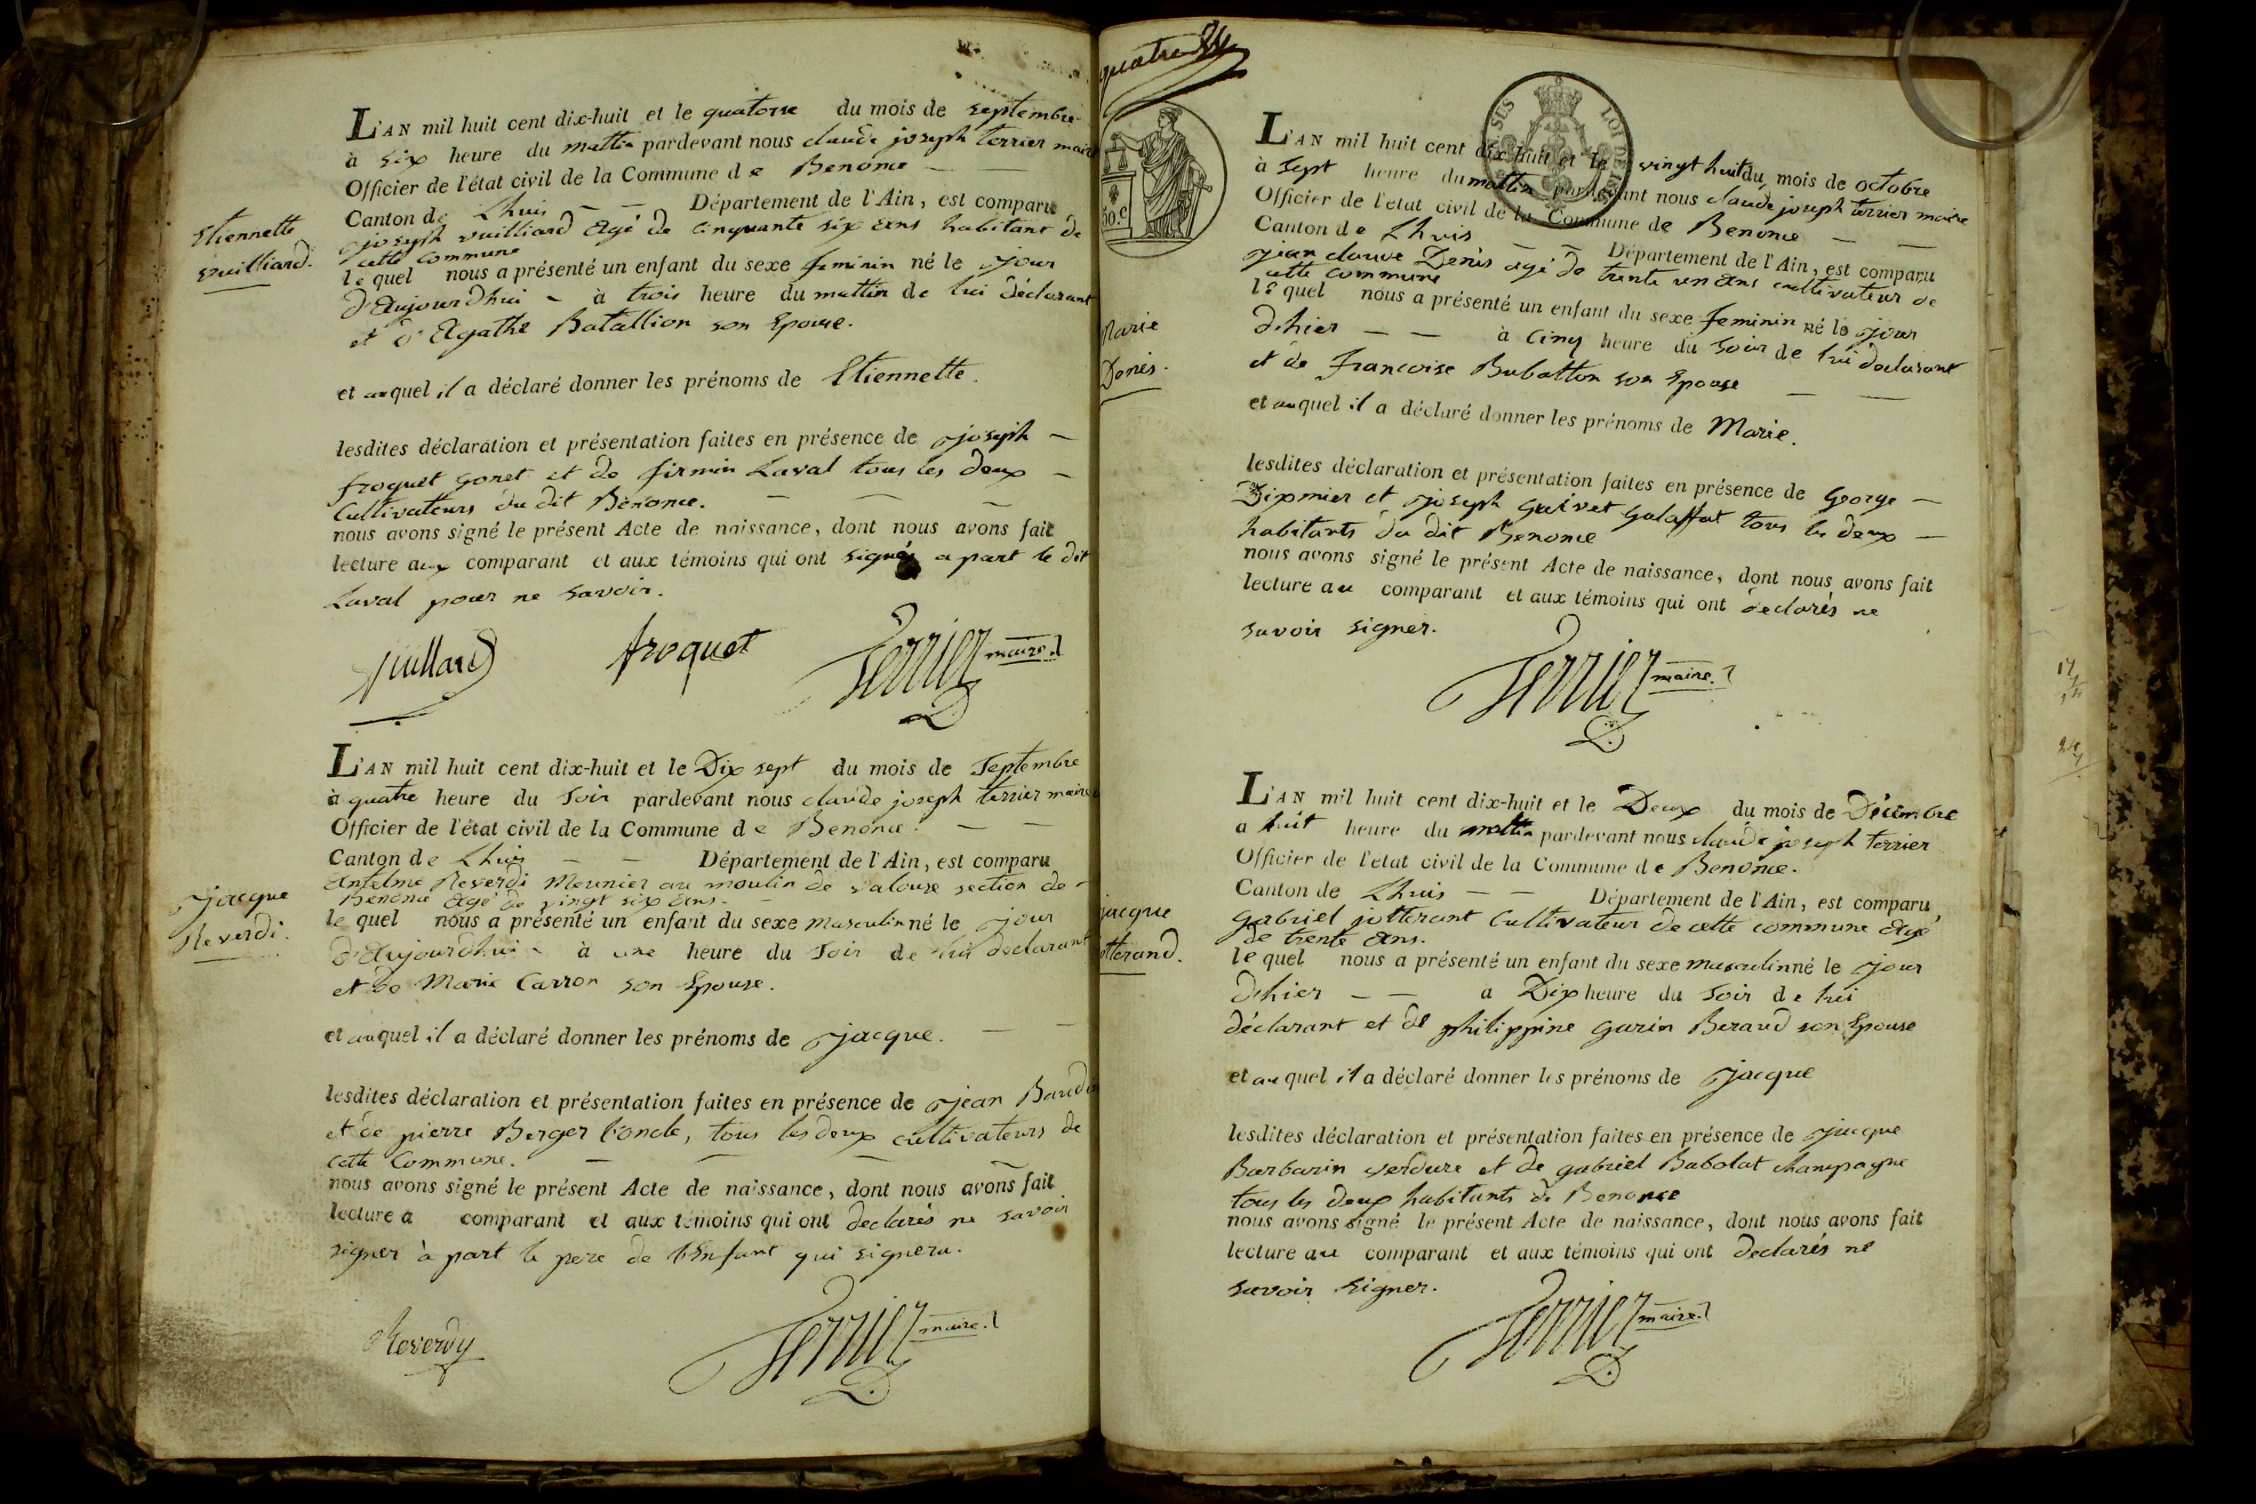 L'AN mil huit cent dix-huit et le quatorse du mois de septembre
à six heure du mattin pardevant nous claude joseph terrier maire
Officier de l'état civil de la Commune de Benonce
Canton de Lhuis Département de l'Ain, est comparu
joseph vuilliard agé de cinquante six ans habitant de
cette commune
lequel nous a présenté un enfant du sexe feminin né le jour
d'aujourdhui à trois heure du mattin de lui déclarant
et d'Agathe Batallion son Epouse.
et auquel il a déclaré donner les prénoms de Etiennette.
lesdites déclaration et présentation faites en présence de joseph
froquet gonet et de firmin Laval tous les deux
Cultivateurs du dit Bénonce.
nous avons signé le présent Acte de naissance, dont nous avons fait
lecture aux comparant et aux témoins qui ont signés a part le dit
Laval pour ne savoir.
Vuillard froquet Terrier maire
Etiennette
vuilliard.
L'AN mil huit cent dix-huit et le Dix sept du mois de Septembre
à quatre heure du Soir pardevant nous claude joseph terrier maire
Officier de l'état civil de la Commune de Benonce.
Canton de Lhuis Département de l'Ain, est comparu
Antelme Reverdi Meunier au moulin de valouse section de
Benonce agé de vingt six ans.
lequel nous a présenté un enfant du sexe masculin né le jour
d'aujourdhui à une heure du Soir de lui declarant
et de Marie Carron son Epouse.
et auquel il a déclaré donner les prénoms de jacque.
lesdites déclaration et présentation faites en présence de jean
et de pierre Berger l'oncle, tous les deux cultivateurs de
cette Commune.
nous avons signé le présent Acte de naissance, dont nous avons fait
lecture a comparant et aux témoins qui ont declarés ne savoir
signer à part le pere de l'Enfant qui signera.
Reverdy Terrier maire
jacque
Reverdi.
quatre
SES LOI DE 1816
50.c
L'AN mil huit cent dix-huit et le vingt huit du mois de octobre
à Sept heure du mattin pardevant nous claude joseph terrier maire
Officier de l'état civil de la Commune de Benonce
Canton de Lhuis Département de l'Ain, est comparu
jean claude Denis agé de trente un ans cultivateur de
cette commune
lequel nous a présenté un enfant du sexe feminin né le jour
dhier à Cinq heure du Soir de lui declarant
et de francoise Babolton son Epouse
et auquel il a déclaré donner les prénoms de Marie.
lesdites déclaration et présentation faites en présence de George
Dixmier et joseph guivet galaffat tous les deux
habitants du dit Benonce
nous avons signé le présent Acte de naissance, dont nous avons fait
lecture au comparant et aux témoins qui ont declarés ne
savoir signer.
Terrier maire.
Marie
Denis.
L'AN mil huit cent dix-huit et le Deux du mois de Décembre
a huit heure du mattin pardevant nous claude joseph terrier
Officier de l'état civil de la Commune de Benonce.
Canton de Lhuis Département de l'Ain, est comparu,
gabriel jotterant Cultivateur de cette commune agé
de trente ans.
lequel nous a présenté un enfant du sexe masculin né le jour
dhier a Dix heure du Soir de lui
déclarant et de philippine garin Beraud son Epouse
et au quel il a déclaré donner les prénoms de jacque
lesdites déclaration et présentation faites en présence de jacque
Barbarin verdure et de gabriel Babolat champagne
tous les deux habitants de Benonce
nous avons signé le présent Acte de naissance, dont nous avons fait
lecture au comparant et aux témoins qui ont declarés ne
savoir signer.
Terrier maire
jacque
otterand.